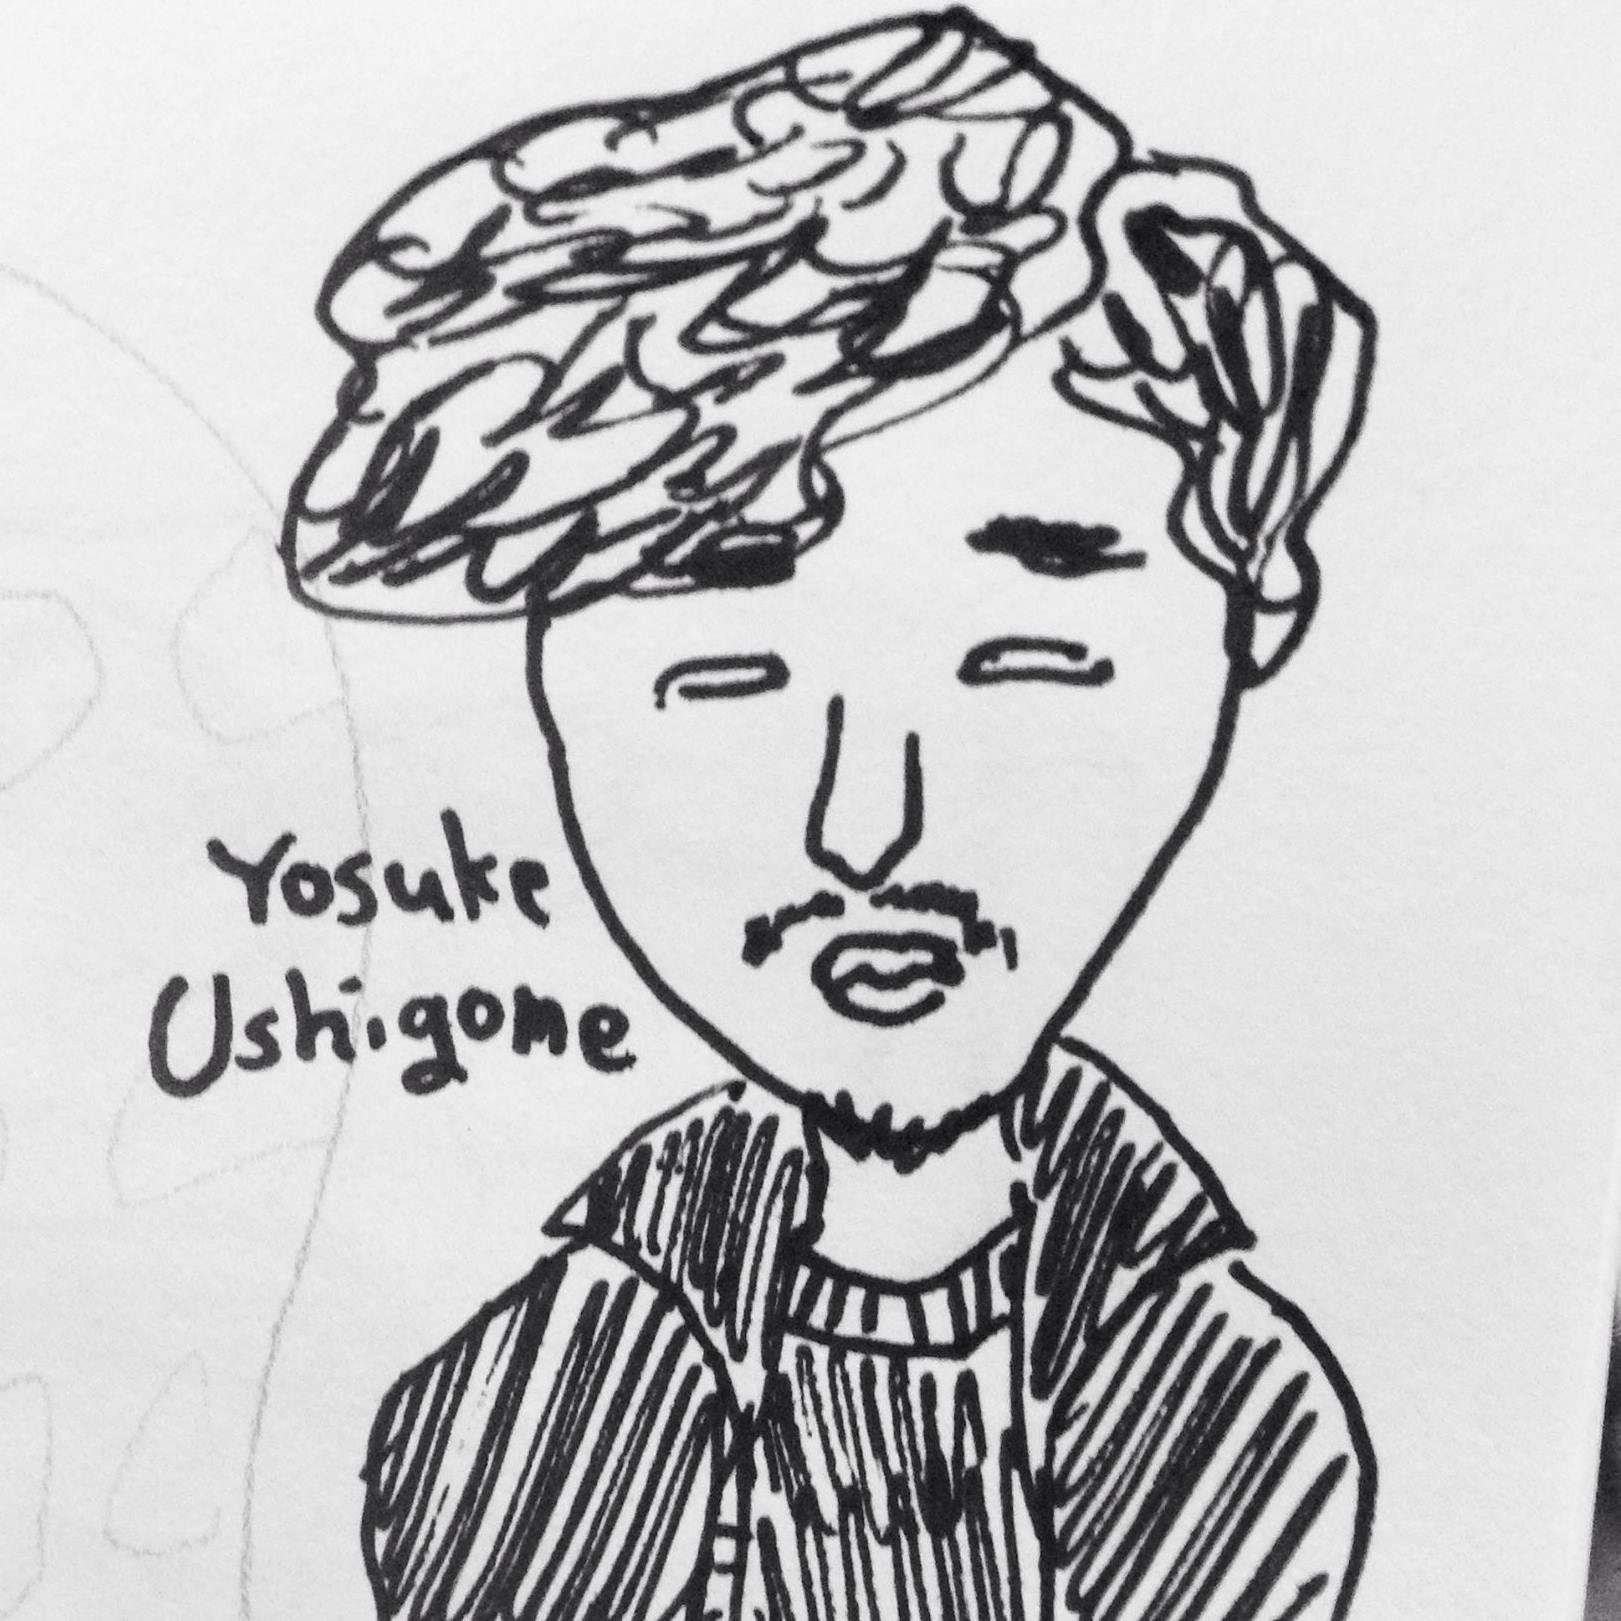 Yosuke
Ushigome